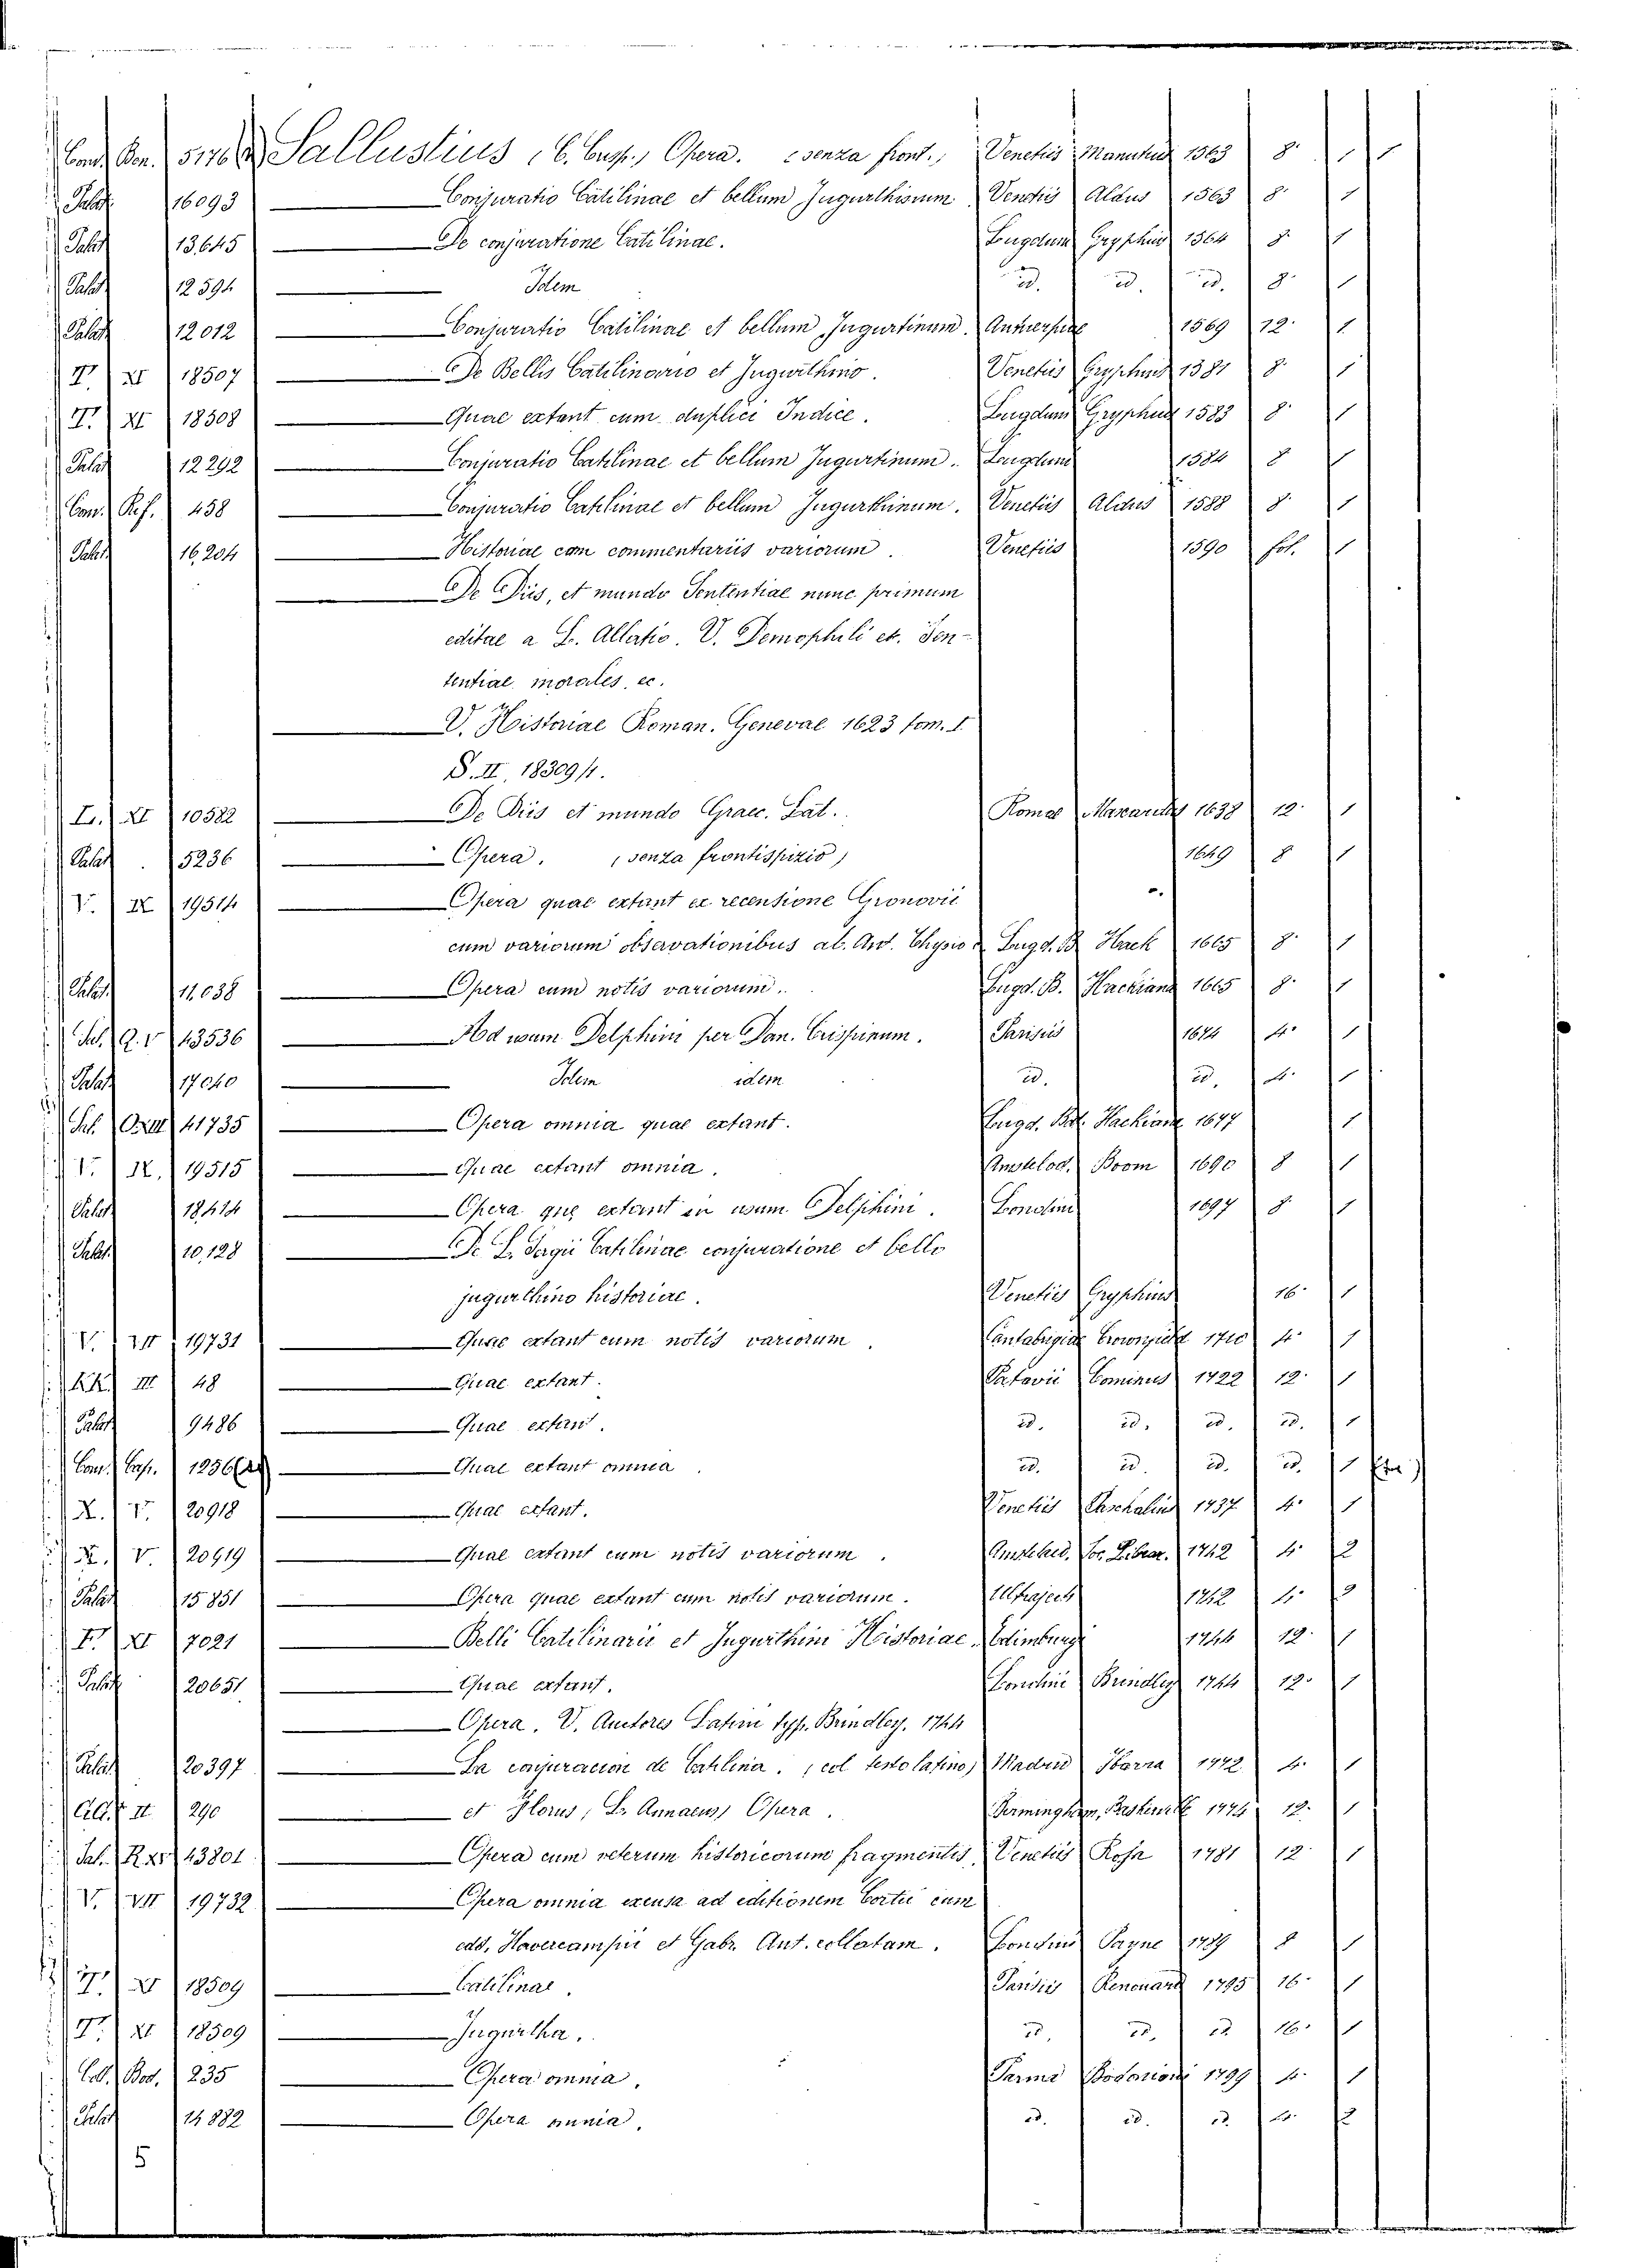 Cond. Ben. 5176 Sallustius, C. Crisp., Opera. (senza front.) Venetiis Manutius 1563 8° 1
Palat. 16093 — Conjuratio Catilinae et bellum Jugurthinum. Venetiis Aldus 1563 8° 1
Palat. 13645 — De conjuratione Catilinae. Lugduni Gryphius 1564 8° 1
Palat. 12594 — Idem id. id. id. 8° 1
Palat. 12012 — Conjuratio Catilinae et bellum Jugurtinum. Antverpiae 1569 12° 1
T. XI 18507 — De Bellis Catilinario et Jugurthino. Venetiis Gryphius 1581 8° 1
T. XI 18508 — Quae extant cum duplici Indice. Lugduni Gryphius 1583 8° 1
Palat. 12292 — Conjuratio Catilinae et bellum Jugurtinum. Lugduni 1584 8 1
Con. Rif. 458 — Conjuratio Catilinae et bellum Jugurthinum. Venetiis Aldus 1588 8° 1
Palat. 16204 — Historiae cum commentariis variorum. Venetiis 1590 fol. 1
— De Diis, et mundo Sententiae nunc primum
editae a L. Allatio. V. Demophili et. Sen-
tentiae morales, ec.
— V. Historiae Roman. Genevae 1623 tom. I.
S. II, 18309/1.
L. XI 10582 — De Diis et mundo Graec. Lat. Romae Mascardus 1638 12° 1
Palat. 5236 — Opera. (senza frontispizio) 1649 8 1
V. IX 19514 — Opera quae extant ex recensione Gronovii
cum variorum observationibus ab. Ant. Thysio Lugd. B. Hack 1665 8° 1
Palat. 11,038 — Opera cum notis variorum. Lugd. B. Hackiana 1665 8° 1
Sal. Q. V 43536 — Ad usum Delphini per Dan. Crispinum. Parisiis 1674 4° 1
Palat. 17040 — Idem idem id. id. 4° 1
Sal. O XIII 41735 — Opera omnia quae extant. Lugd. Bat. Hackiana 1677 1
V. IX. 19515 — Quae extant omnia. Amstelod. Boom 1690 8 1
Palat. 18414 — Opera que extant in usum Delphini. Londini 1697 8° 1
Palat. 10,128 — De L. Sergii Catilinae conjuratione et bello
jugurthino historiae. Venetiis Gryphius 16° 1
V. VII 19731 — Quae extant cum notis variorum. Cantabrigiae Crownfield 1710 4° 1
KK. III 48 — Quae extant. Patavii Cominus 1722 12° 1
Palat. 9486 — Quae extant. id. id. id. id. 1
Con. Cap. 1256 — Quae extant omnia id. id. id. id. 1
X. V. 20918 — Quae extant. Venetiis Paschalius 1737 4° 1
X. V. 20919 — Quae extant cum notis variorum. Amstelaed. Soc. Librar. 1742 4° 2
Palat. 15831 — Opera quae extant cum notis variorum. Ultrajecti 1742 4° 2
F. XI 7021 — Belli Catilinarii et Jugurthini Historiae. Edimburgi 1744 12° 1
Palat. 20651 — Quae extant. Londini Brindley 1744 12° 1
— Opera. V. Auctores Latini typ. Brindley, 1744
Palat. 20397 — La conjuracion de Catilina. (col testo latino) Madrid Ibarra 1772 4° 1
II 290 — et Florus, L. Annaeus, Opera. Birmingham, Baskerville 1774 12° 1
Sal. R XI 43801 — Opera cum veterum historicorum fragmentis. Venetiis Rosa 1781 12° 1
V. VII 19732 — Opera omnia excusa ad editionem Cortii cum
edd. Havercampii et Gabr. Ant. collatam. Londini Payne 1789 8 1
T. XI 18509 — Catilinae. Parisiis Renouard 1795 16° 1
T. XI 18509 — Jugurtha. id. id. id. 16° 1
Coll. Bod. 235 — Opera omnia. Parma Bodonioni 1799 4° 1
Palat. 14882 — Opera omnia. id. id. id. 4° 2
5